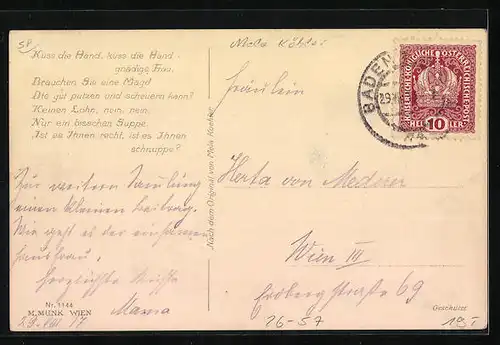 SP
Mela Köhler
Küss die Hand, küss die Hand
gnädige Frau,
Brauchen Sie eine Magd
Die gut putzen und scheuern kann?
Keinen Lohn, nein, nein,
Nur ein bisschen Suppe
Ist es Ihnen recht, ist es Ihnen
schnuppe?
Zur weitern Samlung
einen kleinen Beitrag.
Wie geht es der einsamen
Hausfrau.
Herzlichste
Mama
Nr. 1144
M. MUNK WIEN
29. VIII 17
Nach dem Original von Mela Koehler
BADEN
KAISERLICHE KÖNIGLICHE ÖSTERREICHISCHE POST
HELLER 10 HELLER
Fräulein
Herta von
Wien III
Erdbergstraße 69
Geschützt
26-57